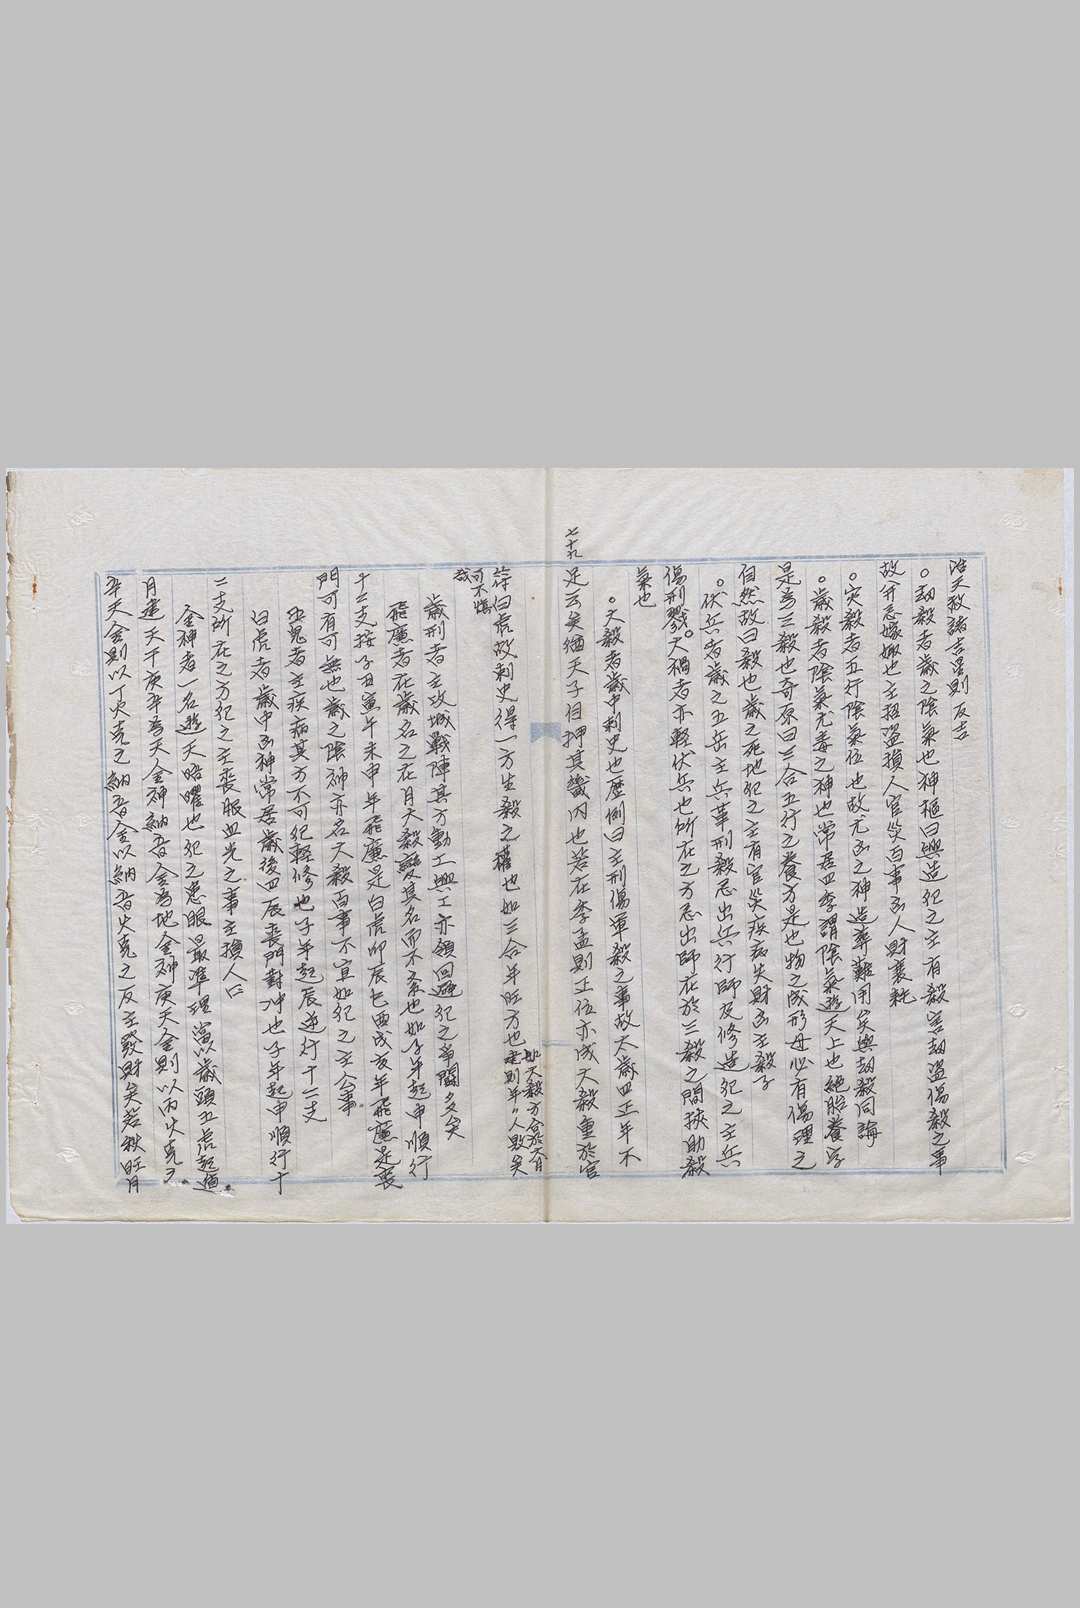 治天赦諸吉星則反吉
。劫殺者歲之陰氣也神樞曰興造犯之主有殺害劫盜傷殺之事
故分忌嫁娶也主招盜損人官災百事凶人財衰耗
。災殺者五行陰氣位也故尤凶之神造葬難用矣與劫殺同論
。歲殺者陰氣尤毒之神也常居四季謂陰氣遊天上也絕胎養字
是為三殺也奇原曰三合五行之養方是也物之成形母必有傷理之
自然故曰殺也歲之死地犯之主有官災疾病失財凶主殺子
。伏兵者歲之五岳主兵革刑殺忌出兵行師及修造犯之主兵
傷刑戮。大禍者亦輕伏兵也所在之方忌出師在於三殺之間挾助殺
氣也
。大殺者歲中刺史也歷例曰主刑傷軍殺之事故大歲四正年不
七十九
足云矣猶天子自押其畿內也若在季孟則正位亦成大殺重於官
符白虎故刺史得一方生殺之權也如三合年旺方也如大殺方合於六月
建則年人敗矣
可不慎
哉
歲刑者主攻城戰陣其方動工興工亦須回避犯之爭鬪多矣
飛廉者在歲名之在月大殺變其名而不系也如子年起申順行
十二支按子丑寅午未申年飛廉是白虎卯辰巳酉戌亥年飛廉是喪
門可有可無也歲之陰神亦名大殺百事不宜如犯之主人公事。
五鬼者主疾病其方不可犯輕修也子年起辰逆行十二支
白虎者歲中凶神常居歲後四辰喪門對冲也子年起申順行十
二支所在之方犯之主喪服血光之事主損人口
金神者一名遊天暗曜也犯之患眼最準理當以歲頭五虎起遁。
月建天干庚辛為天金神納音金為地金神庚天金則以丙火克之。
辛天金則以丁火克之納音金以納音火克之反主發財矣若秋旺月